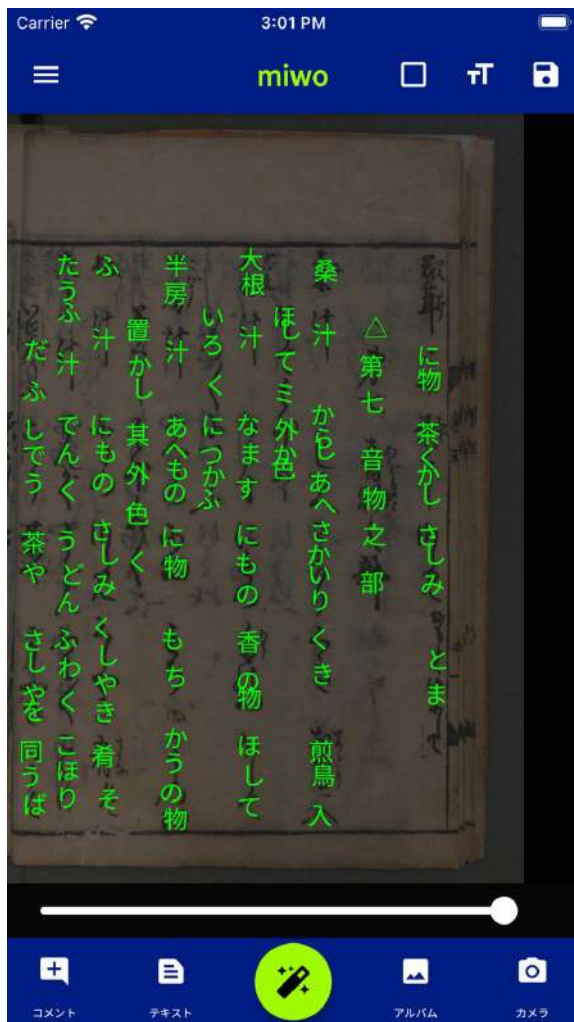 Carrier 3:01 PM
miwo
に物 茶くかし さしみ とま
△第七 音物之部
桑 汁 からし あへ さかいり くき 煎鳥 入
ほして ミ 外か色
大根 汁 なます にもの 香の物 ほして
いろく につかふ
半房 汁 あへもの に物 もち かうの物
置かし 其外色く
ふ 汁 にもの さしみ くしやき 肴 そ
たうふ 汁 でんく うどん ふわく こほり
だふ しでう 茶や さし やを 同うば
コメント
テキスト
アルバム
カメラ